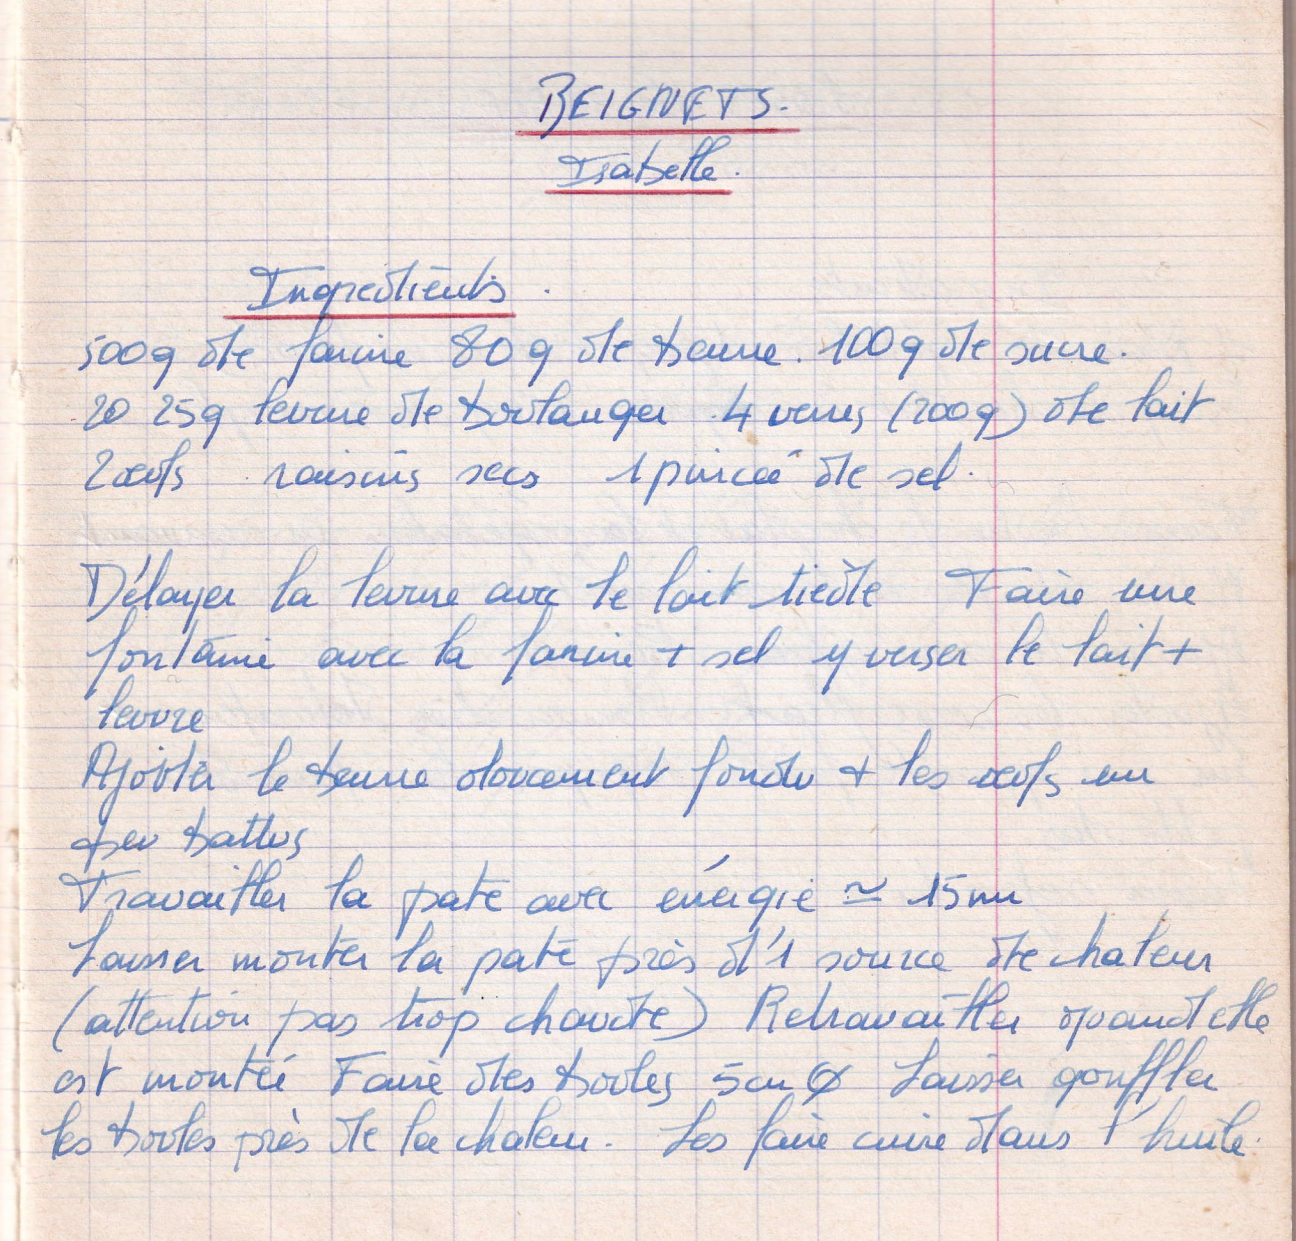 BEIGNETS.
Isabelle.
Ingrédients.
500g de farine 80g de beurre. 100g de sucre.
20 25g levure de boulanger 4 verres (200g) de lait
2 œufs raisins secs 1 pincée de sel.
Délayer la levure avec le lait tiède Faire une
fontaine avec la farine + sel y verser le lait +
levure
Ajouter le beurre doucement fondu + les œufs un
peu battus
Travailler la pate avec énérgie ≃ 15mn
Laisser monter la pate près d'1 source de chaleur
(attention pas trop chaude) Retravailler quand elle
est montée Faire des boules 5cm Ø Laisser gonffler
les boules près de la chaleur. Les faire cuire dans l'huile.